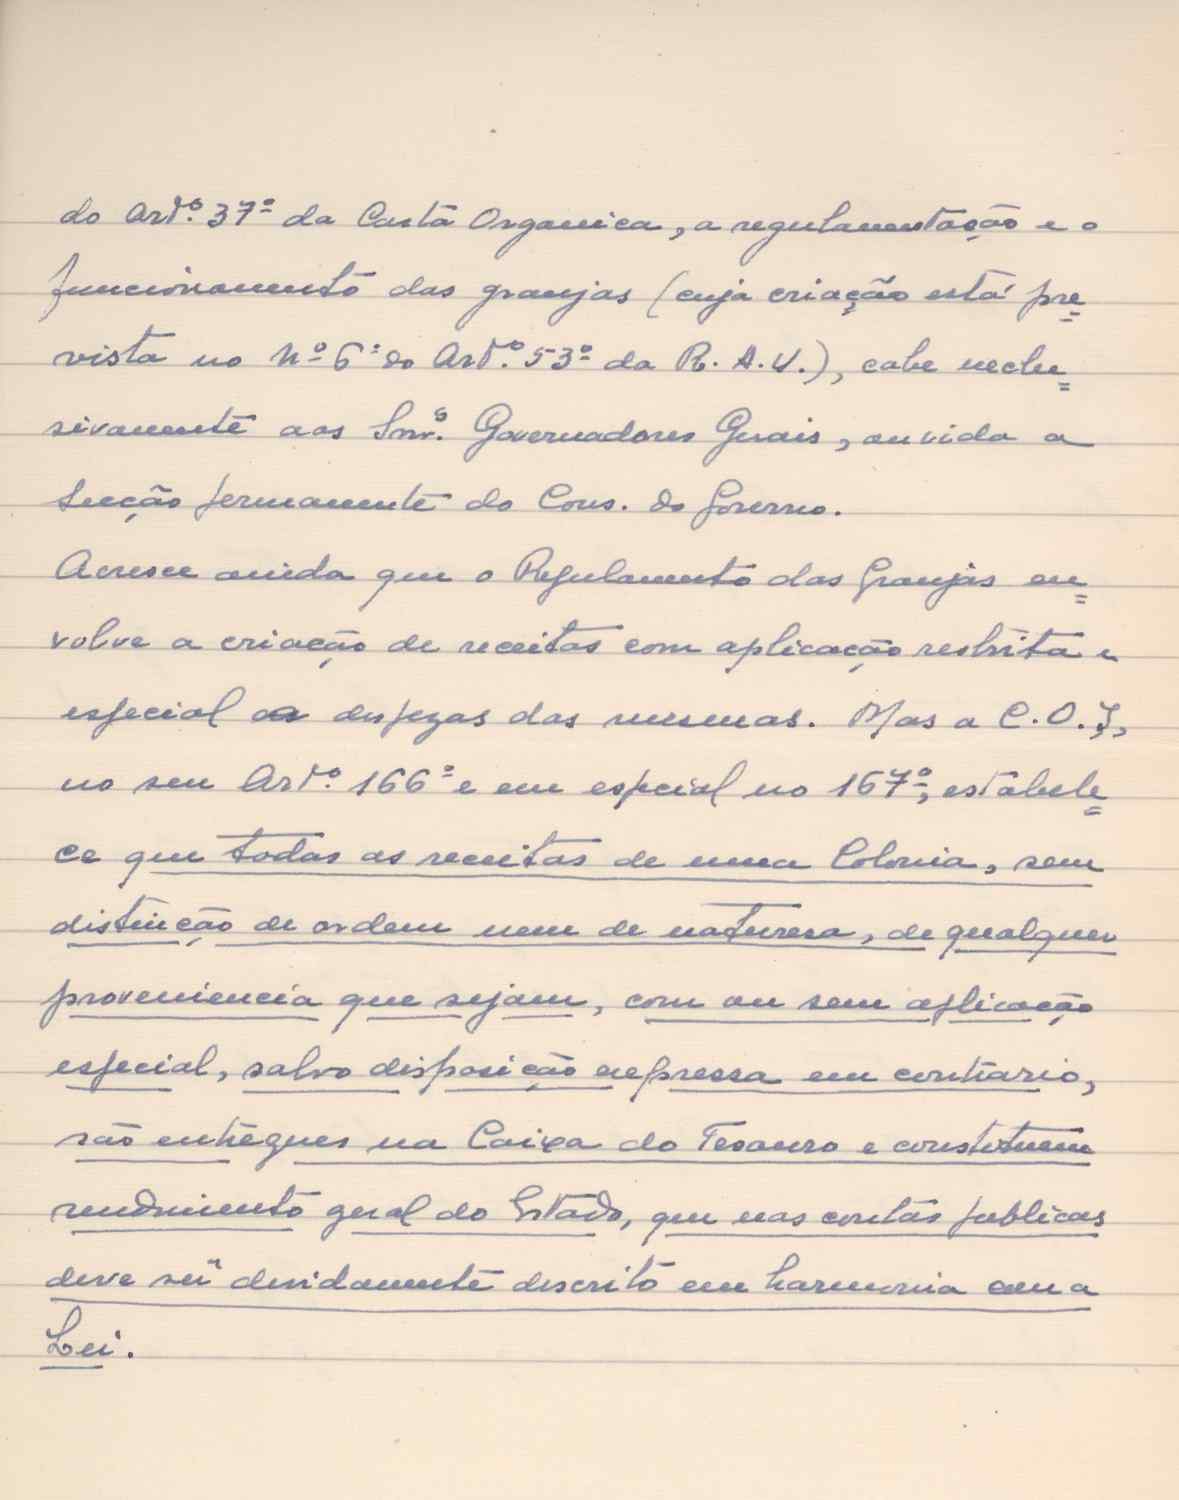 do Artº. 37º da Carta Organica, a regulamentação e o
funcionamento das granjas (cuja criação está pre=
vista no nº 6º do Artº. 53º da R. A. U.), cabe exclu=
sivamente aos Snrs. Governadores Gerais, ouvida a
Secção permanente do Cons. do Governo.
Acresce ainda que o Regulamento das Granjas en=
volve a criação de receitas com aplicação restrita e
especial as despezas das mesmas. Mas a C. O. I,
no seu Artº. 166º e em especial no 167º, estabele=
ce que todas as receitas de uma Colonia, sem
distinção de ordem nem de natureza, de qualquer
proveniencia que sejam, com ou sem aplicação
especial, salvo disposição expressa em contrario,
são entregues na Caixa do Tesouro e constituem
rendimento geral do Estado, que nas contas publicas
deve ser devidamente descrito em harmonia com a
Lei.